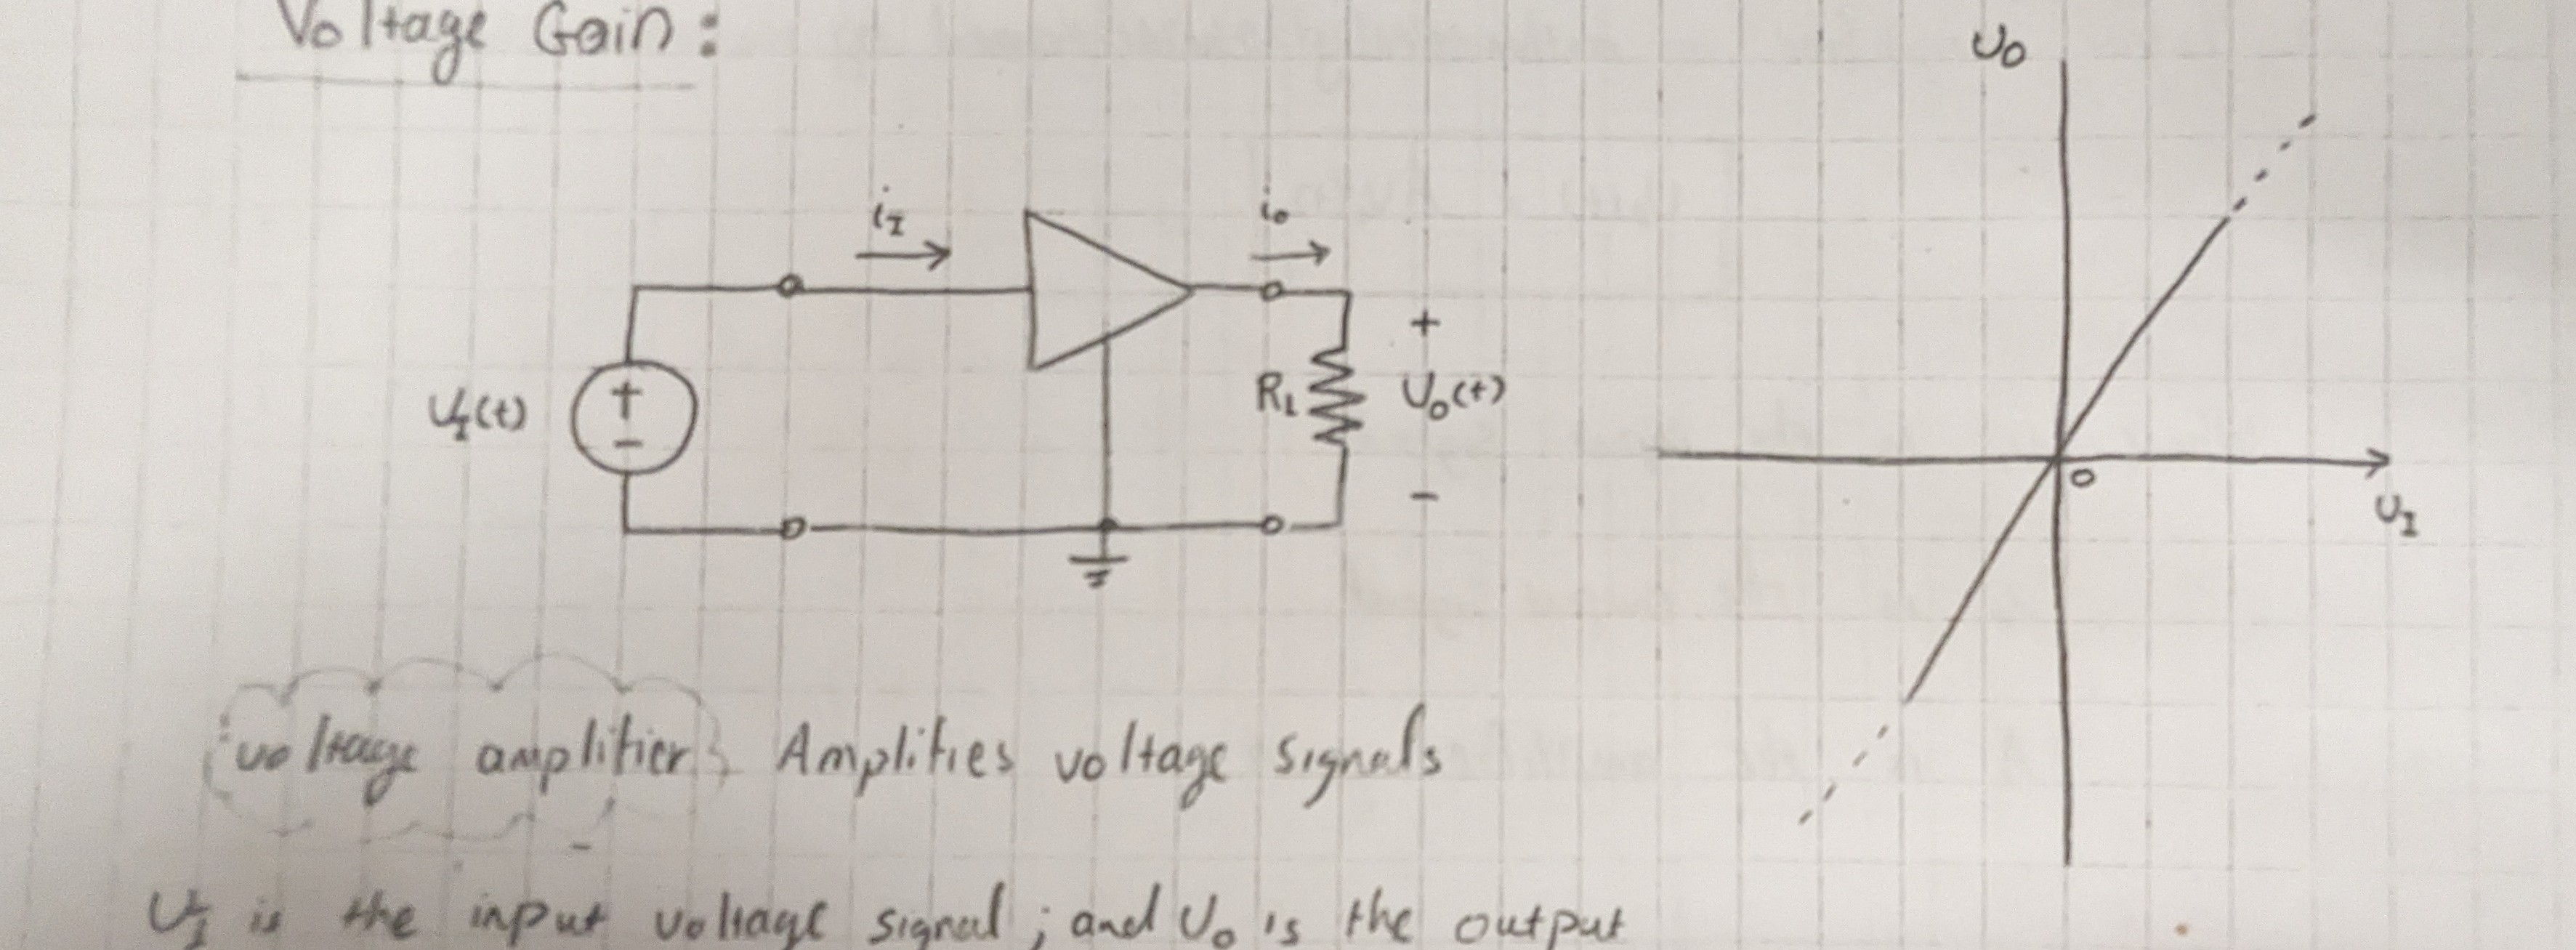 Voltage Gain:
υO
iI
io
+
υI(t)
+
-
RL
υo(t)
-
0
υI
voltage amplifier
Amplifies voltage signals
υI is the input voltage signal; and υo is the output